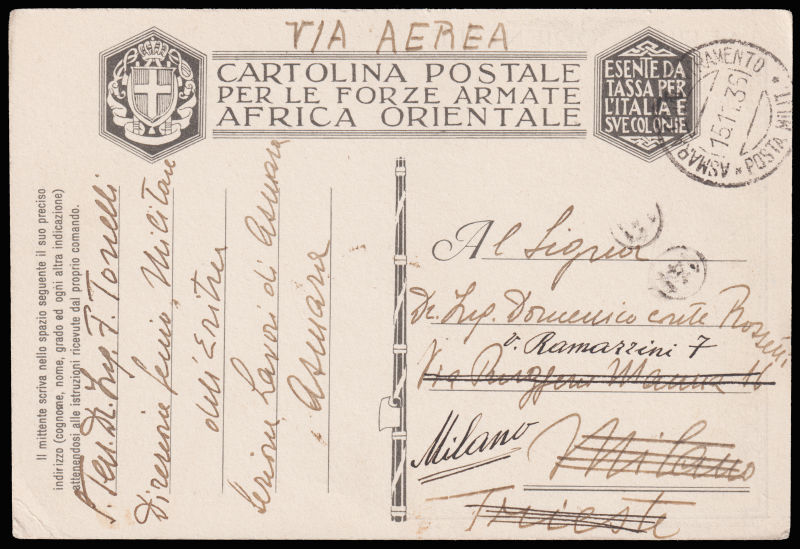 VIA AEREA
CARTOLINA POSTALE
PER LE FORZE ARMATE
AFRICA ORIENTALE
ESENTE DA
TASSA PER
L'ITALIA E
SVE COLONIE
ASMARA * POSTA MILIT. *
15.1 36
Il mittente scriva nello spazio seguente il suo preciso
indirizzo (cognome, nome, grado ed ogni altra indicazione)
attenendosi alle istruzioni ricevute dal proprio comando.
S. Ten. Dr. Ing. F. Tonelli
Direzione Genio Militare
dell'Eritrea
Sezione Lavori di Asmara
Asmara
Al Signor
Dr. Ing. Domenico conte Rossetti
v. Ramazzini 7
Via Ruggero Manna 16
Milano
Milano
Trieste